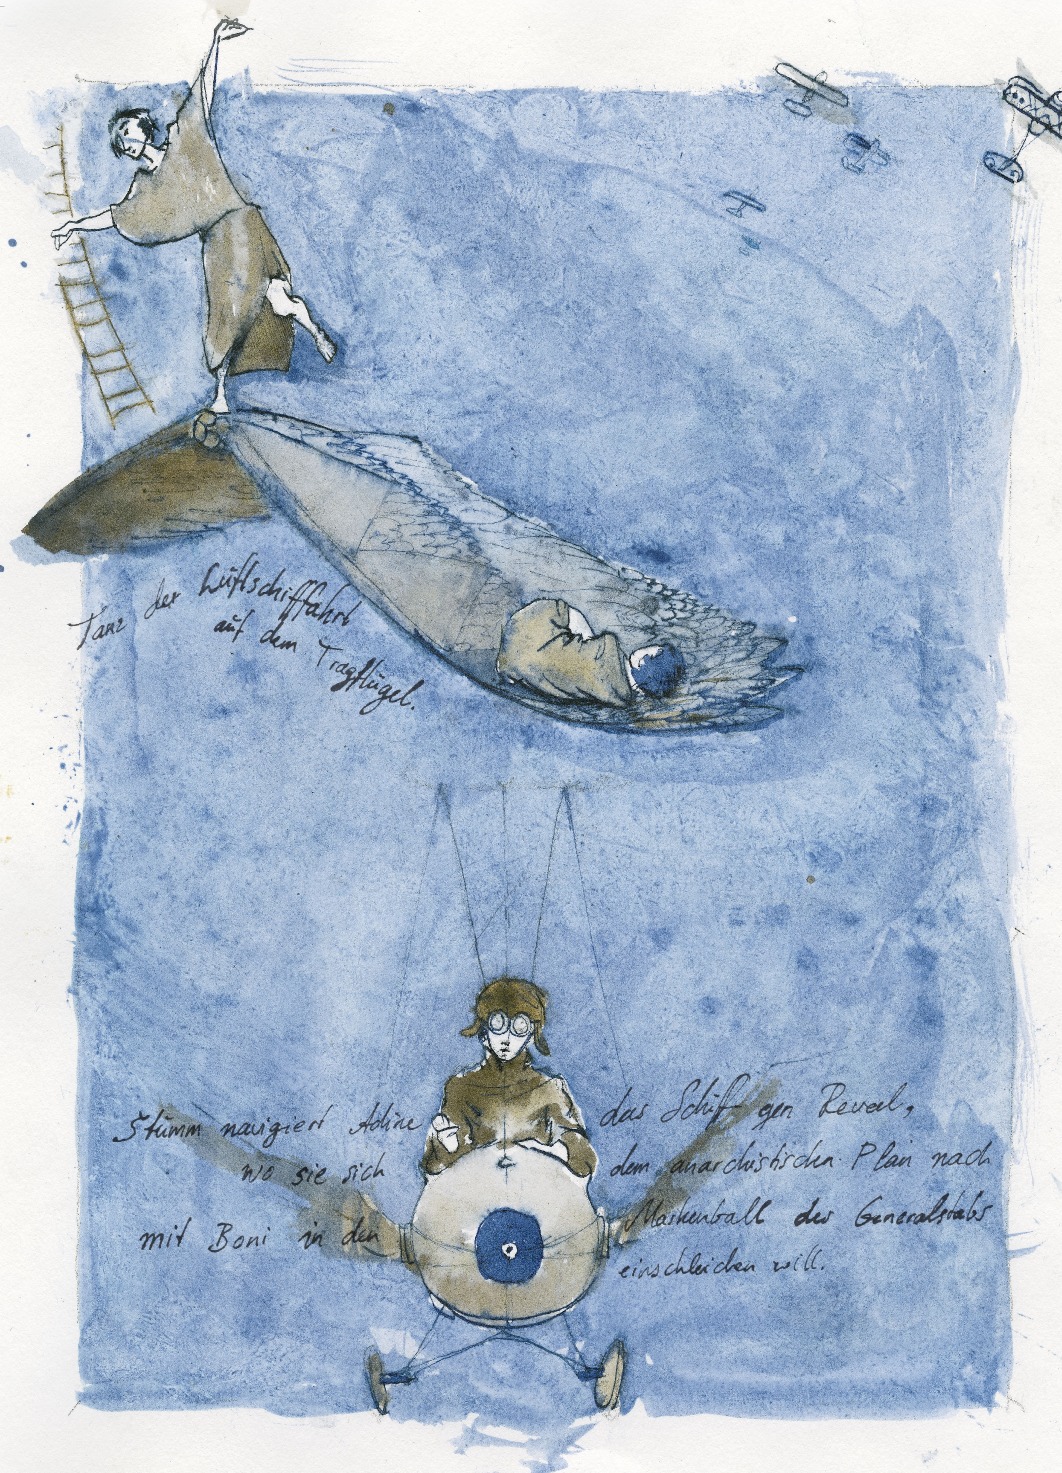 Tanz der Luftschiffahrt
auf dem Tragflügel.
Stumm navigiert Adine das Schiff gen Reval,
wo sie sich dem anarchistischen Plan nach
mit Boni in den Maskenball des Generalstabs
einschleichen will.